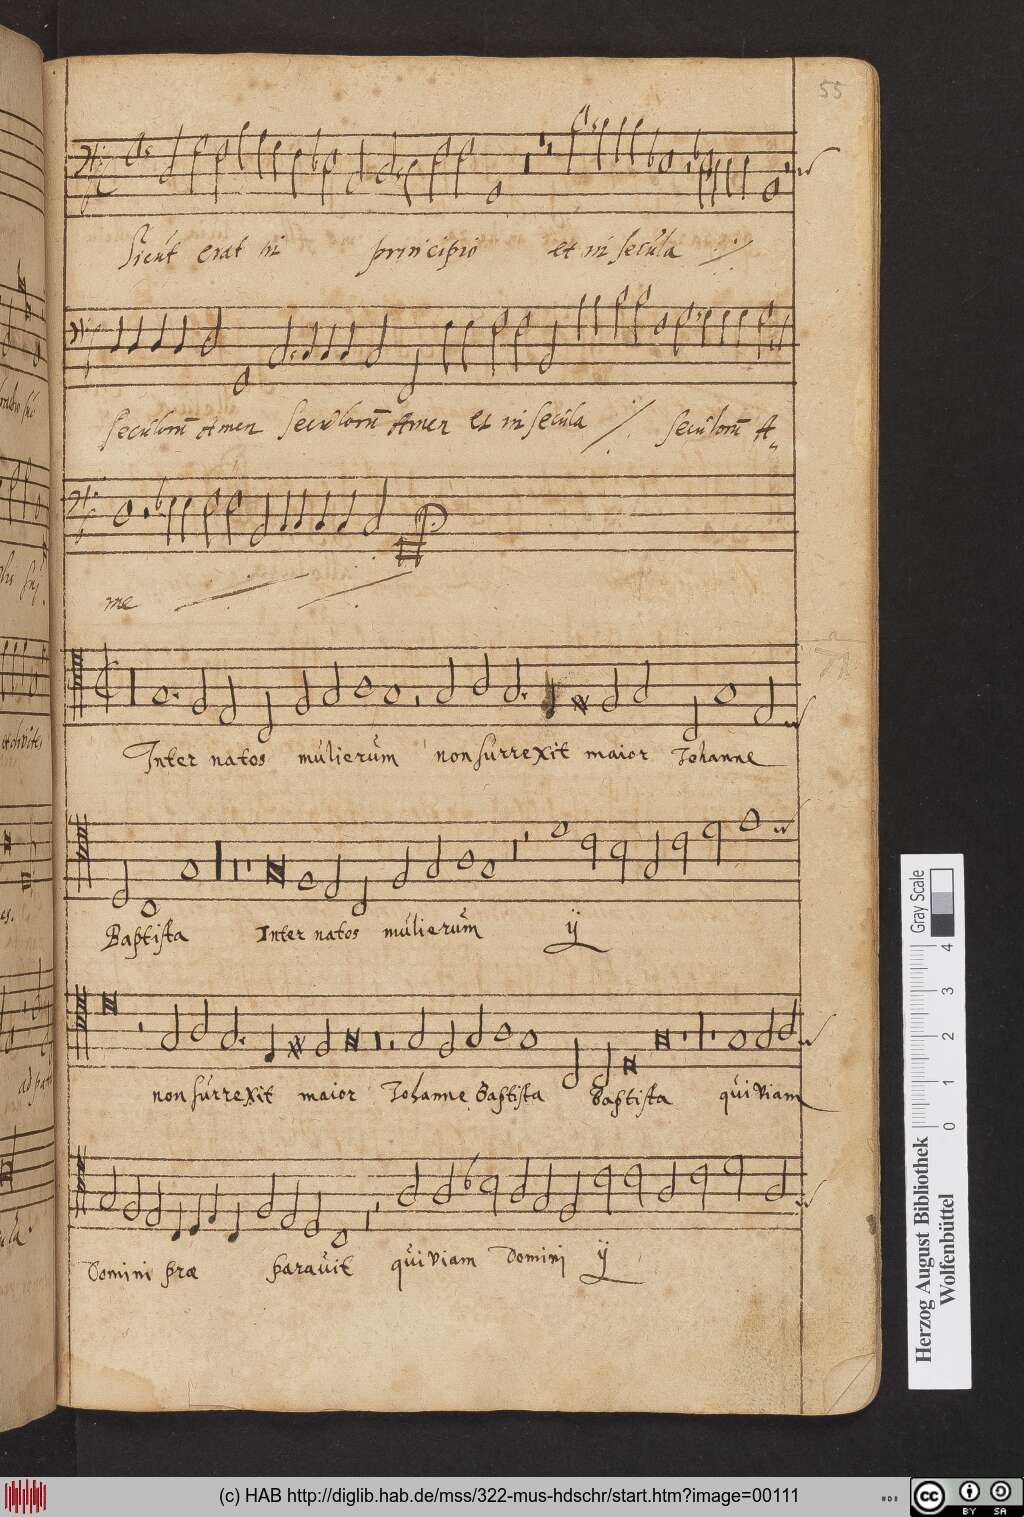 55
Sicut erat in principio et in secula ·/·
seculorum Amen seculorum Amen et in secula ·/· seculorum A-
me
Inter natos mulierum non surrexit maior Iohanne
Baptista Inter natos mulierum ij
non surrexit maior Iohanne Baptista Baptista qui viam
Domini præ paravit qui viam Domini ij
Gray Scale
0 1 2 3 4
Herzog August Bibliothek
Wolfenbüttel
(c) HAB http://diglib.hab.de/mss/322-mus-hdschr/start.htm?image=00111
cc BY SA